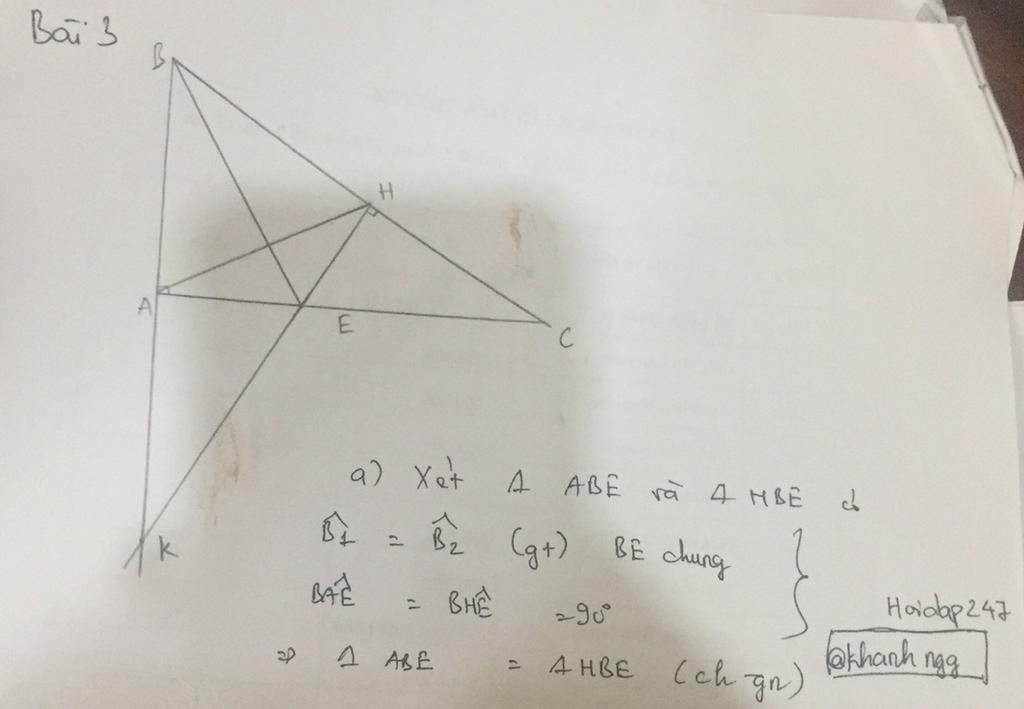 Bài 3
B
H
A
E
C
K
a) Xét Δ ABE và Δ HBE có
B̂1 = B̂2 (gt) BE chung
BÂE = BĤE = 90°
⇒ Δ ABE = Δ HBE (ch-gn)
Hoidap247
@khanh ngg